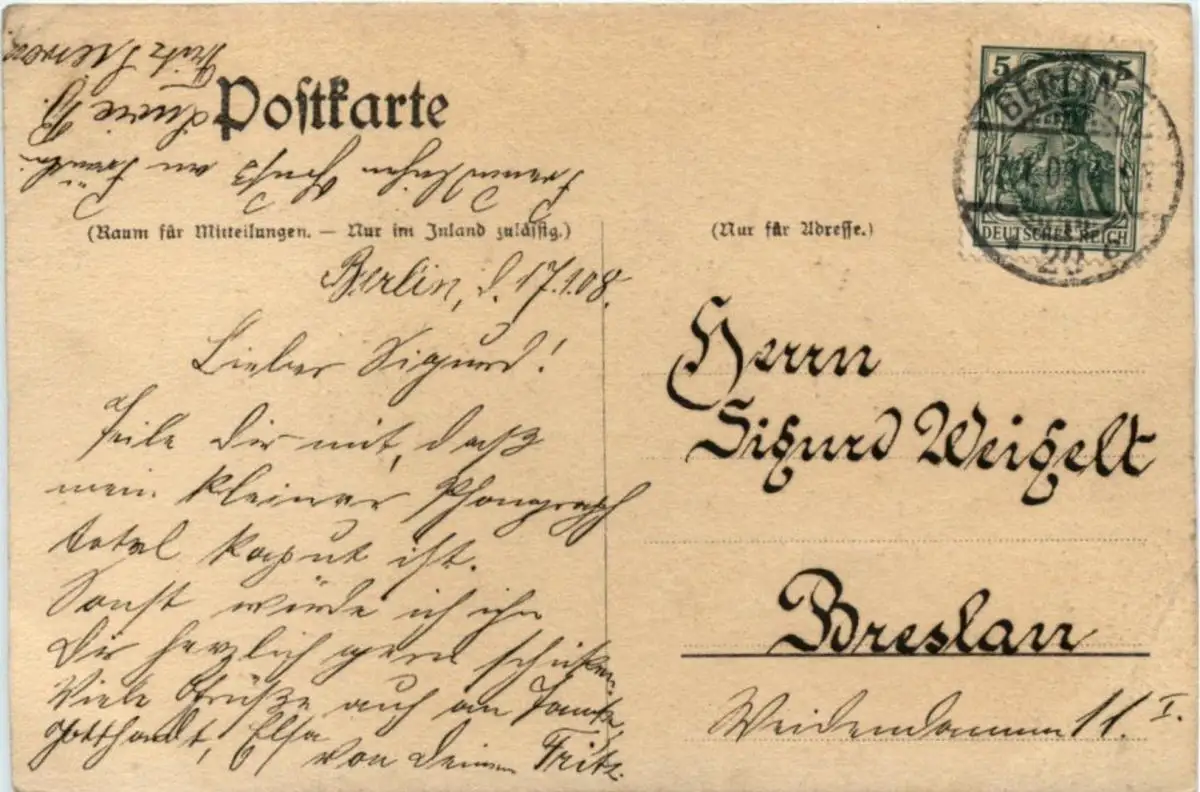 Postkarte
(Raum für Mitteilungen. — Nur im Inland zulässig.)
Berlin, d. 17.1.08.
Lieber Sigurd!
Teile Dir mit, daß
mein kleiner Phonograph
total kaput ist.
Sonst würde ich ihn
Dir herzlich gern schicken.
Viele Grüße auch an Tante,
Gotthardt, Elsa
von deinem Fritz.
Freundlichen Gruß an
Fritz
5 5
DEUTSCHES REICH
BERLIN
20
(Nur für Adresse.)
Herrn
Sigurd Weigelt
Breslau
Weidendamm 11 I.